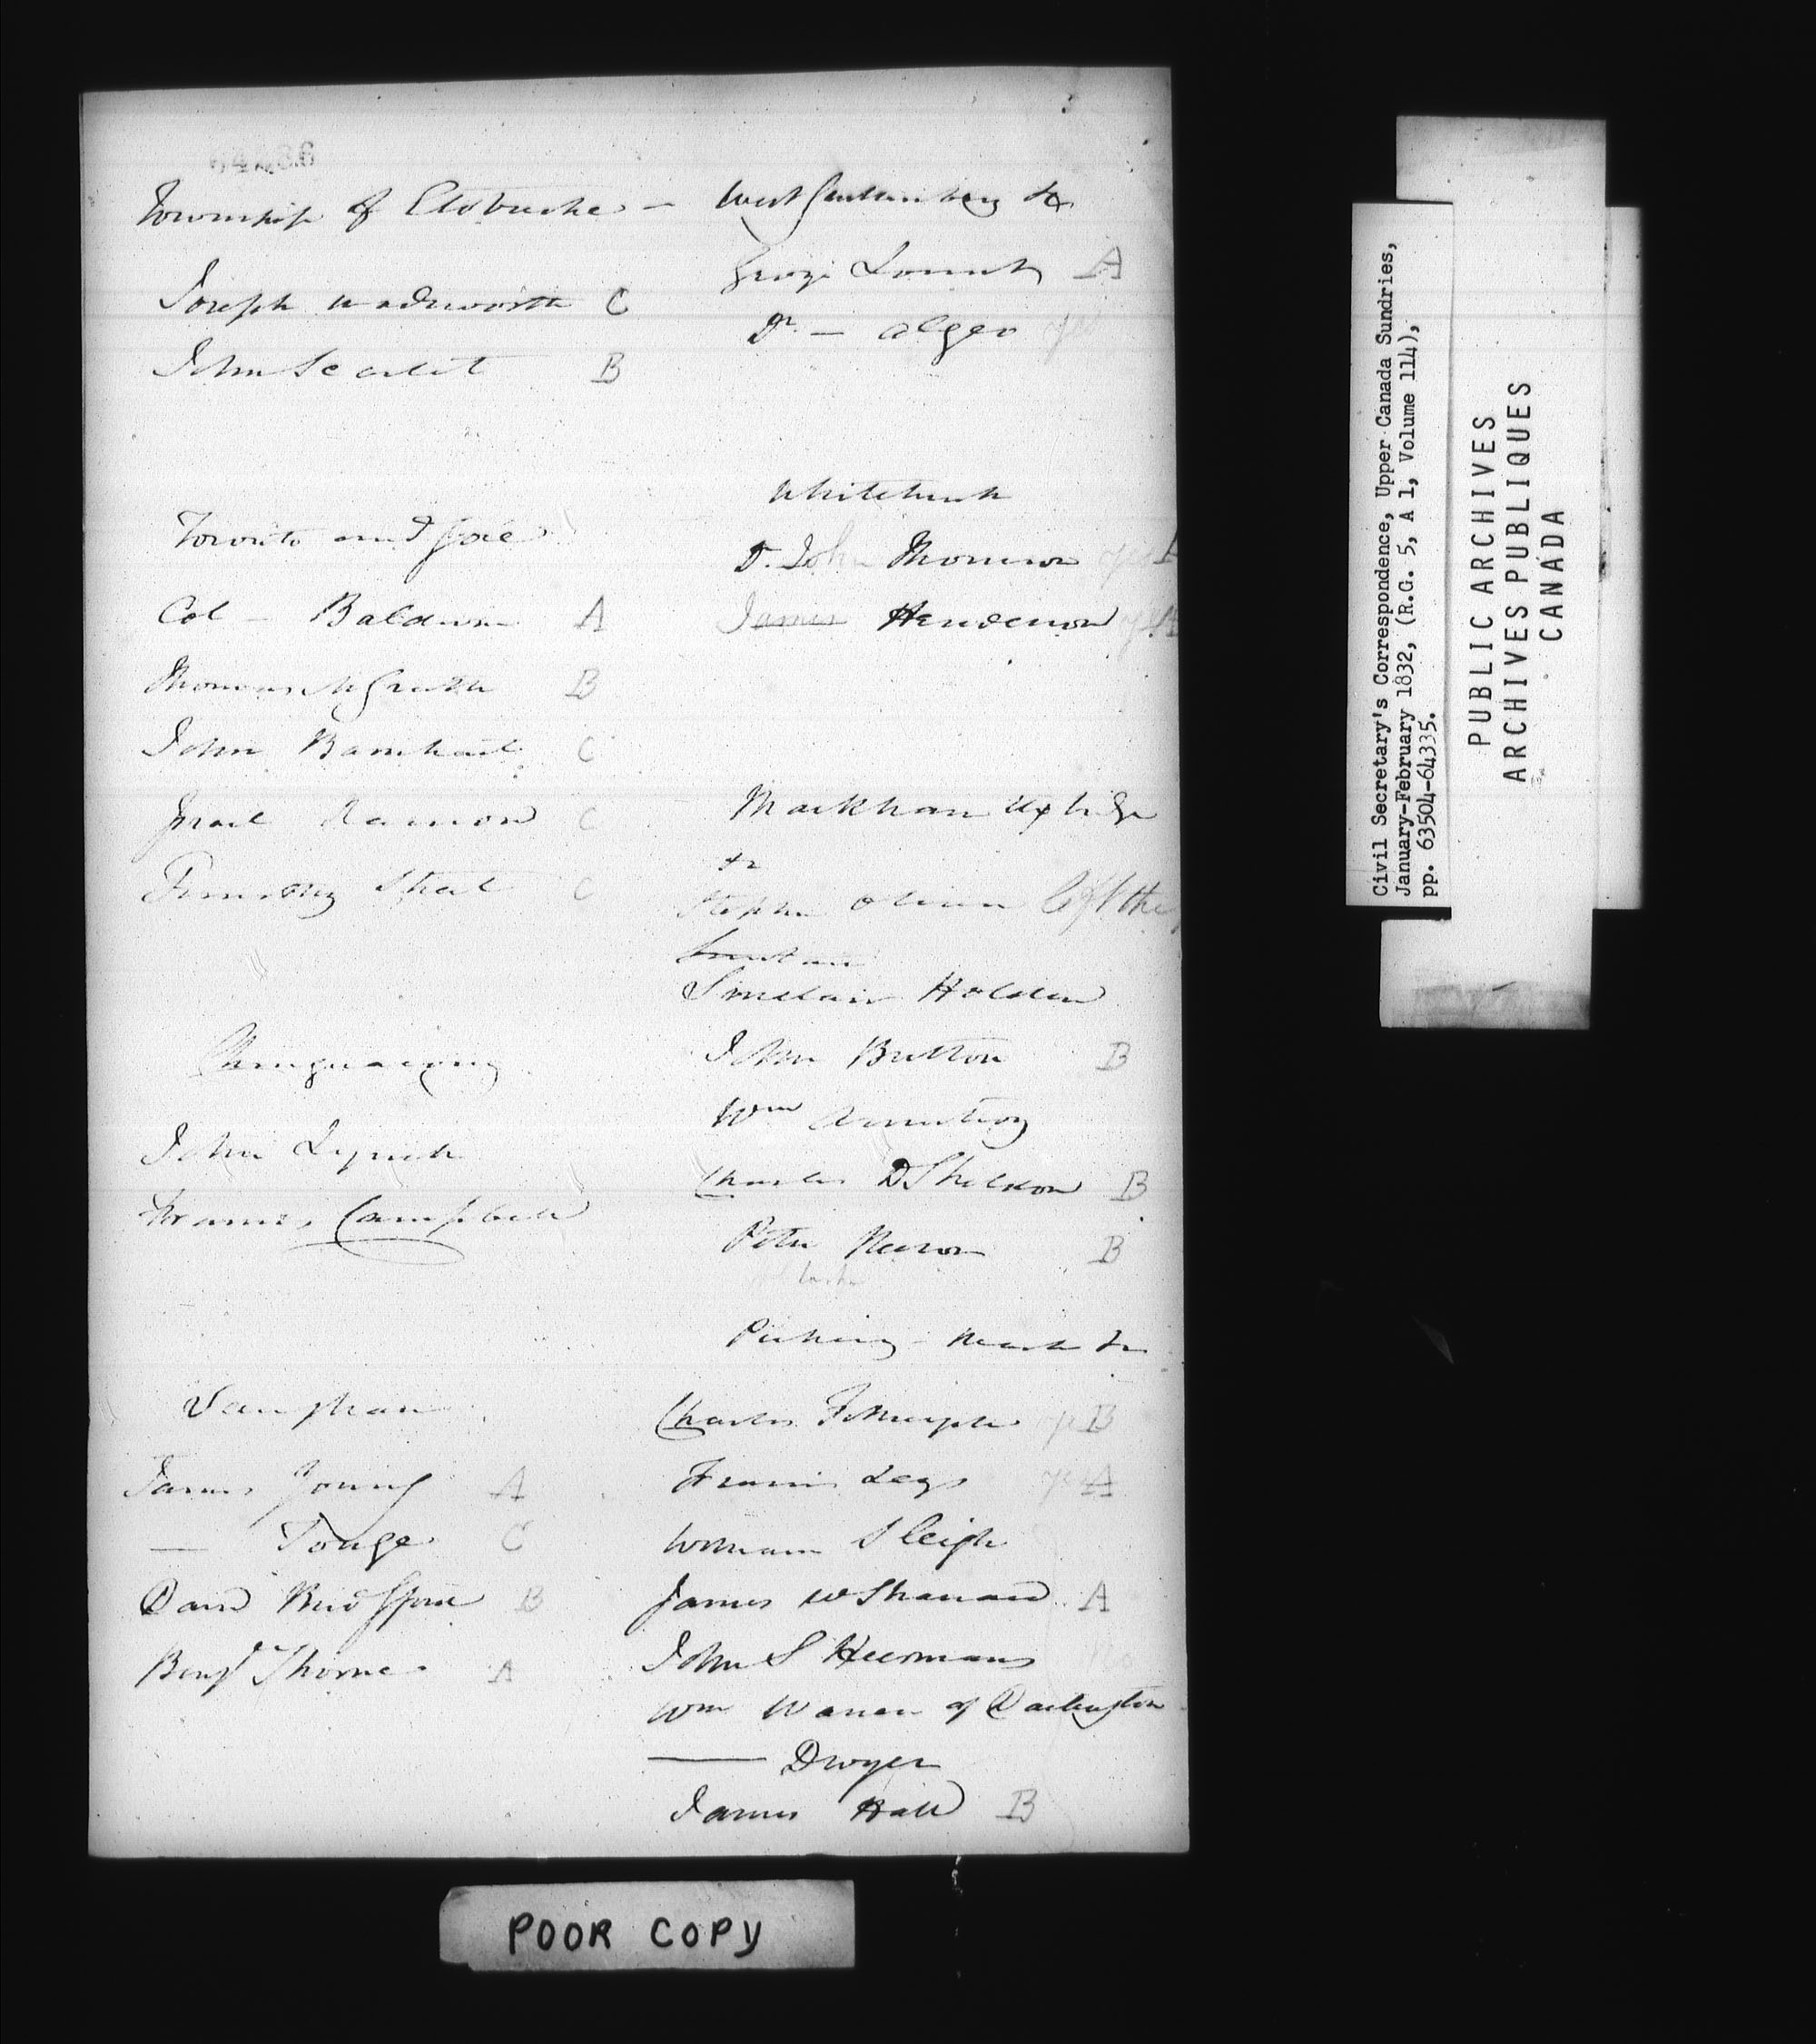 Township of Etobicoke -
Joseph Wadsworth C
John Scarlet B
Toronto and Gore
Col - Baldwin A
Thomas McGrath B
John Barnhart C
Israel Ransom C
Timothy Street C
Chinguacousy
John Lynch
Francis Campbell
Vaughan
James Young A
— Tonge C
David Bridgford B
Benjn Thorne A
West Gwillimbury &c
George Lount A
Dr. — Algeo yes
Whitchurch
Dr. John Thomson yes
James Henderson yes A
Markham Uxbridge
&c
Stephen Oliver left the
Sinclair Holden
John Button B
Wm Armstrong
Charles D Sheldon B
Peter Messon B
Pickering - March &c
Charles Fothergill yes B
Francis Leys yes A
William Sleigh
James W Sharrard A
John S Heermans
Wm Warren of Darlington
—— Dwyer
James Hall B
POOR COPY
Civil Secretary's Correspondence, Upper Canada Sundries,
January-February 1832, (R.G. 5, A 1, Volume 114),
pp. 63504-64335.
PUBLIC ARCHIVES
ARCHIVES PUBLIQUES
CANADA